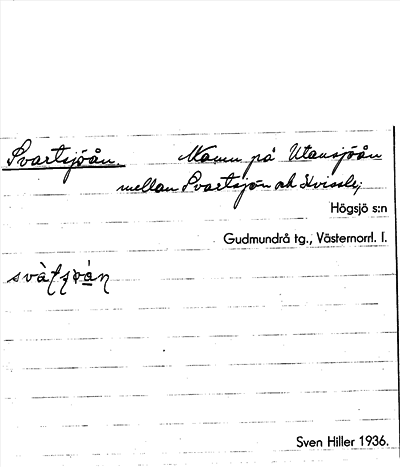 Svartsjöån. Namn på Utansjöån
mellan Svartsjön och
Högsjö s:n
Gudmundrå tg., Västernorrl. l.
Sven Hiller 1936.